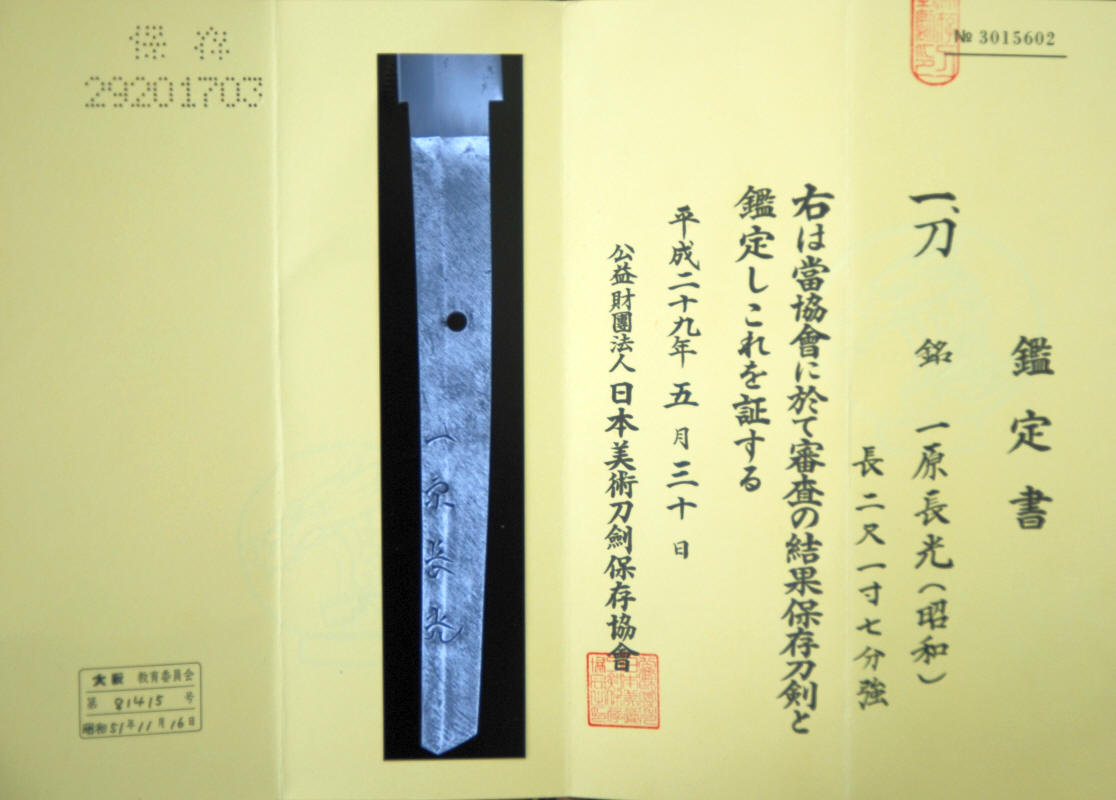 № 3015602
鑑定書
一、刀 銘 一原長光(昭和)
長二尺一寸七分強
右は當協會に於て審査の結果保存刀剣と
鑑定しこれを証する
平成二十九年五月三十日
公益財團法人 日本美術刀劍保存協會
一原長光
保存
29201703
大阪 教育委員会
第 81415 号
昭和51年11月16日